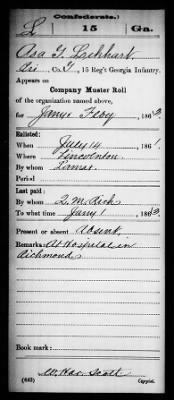 (Confederate.)
L 15 Ga.
Asa T. Lockhart
Pri, Co. G, 15 Reg't Georgia Infantry.
Appears on
Company Muster Roll
of the organization named above,
for Jany & Feby, 1863.
Enlisted:
When July 14, 1861.
Where Lincolnton
By whom
Period
Last paid:
By whom Q. M. Rick
To what time Jany 1, 1863.
Present or absent Absent
Remarks: At Hospital in
Richmond
Book mark:
Scott
(642) Copyist.